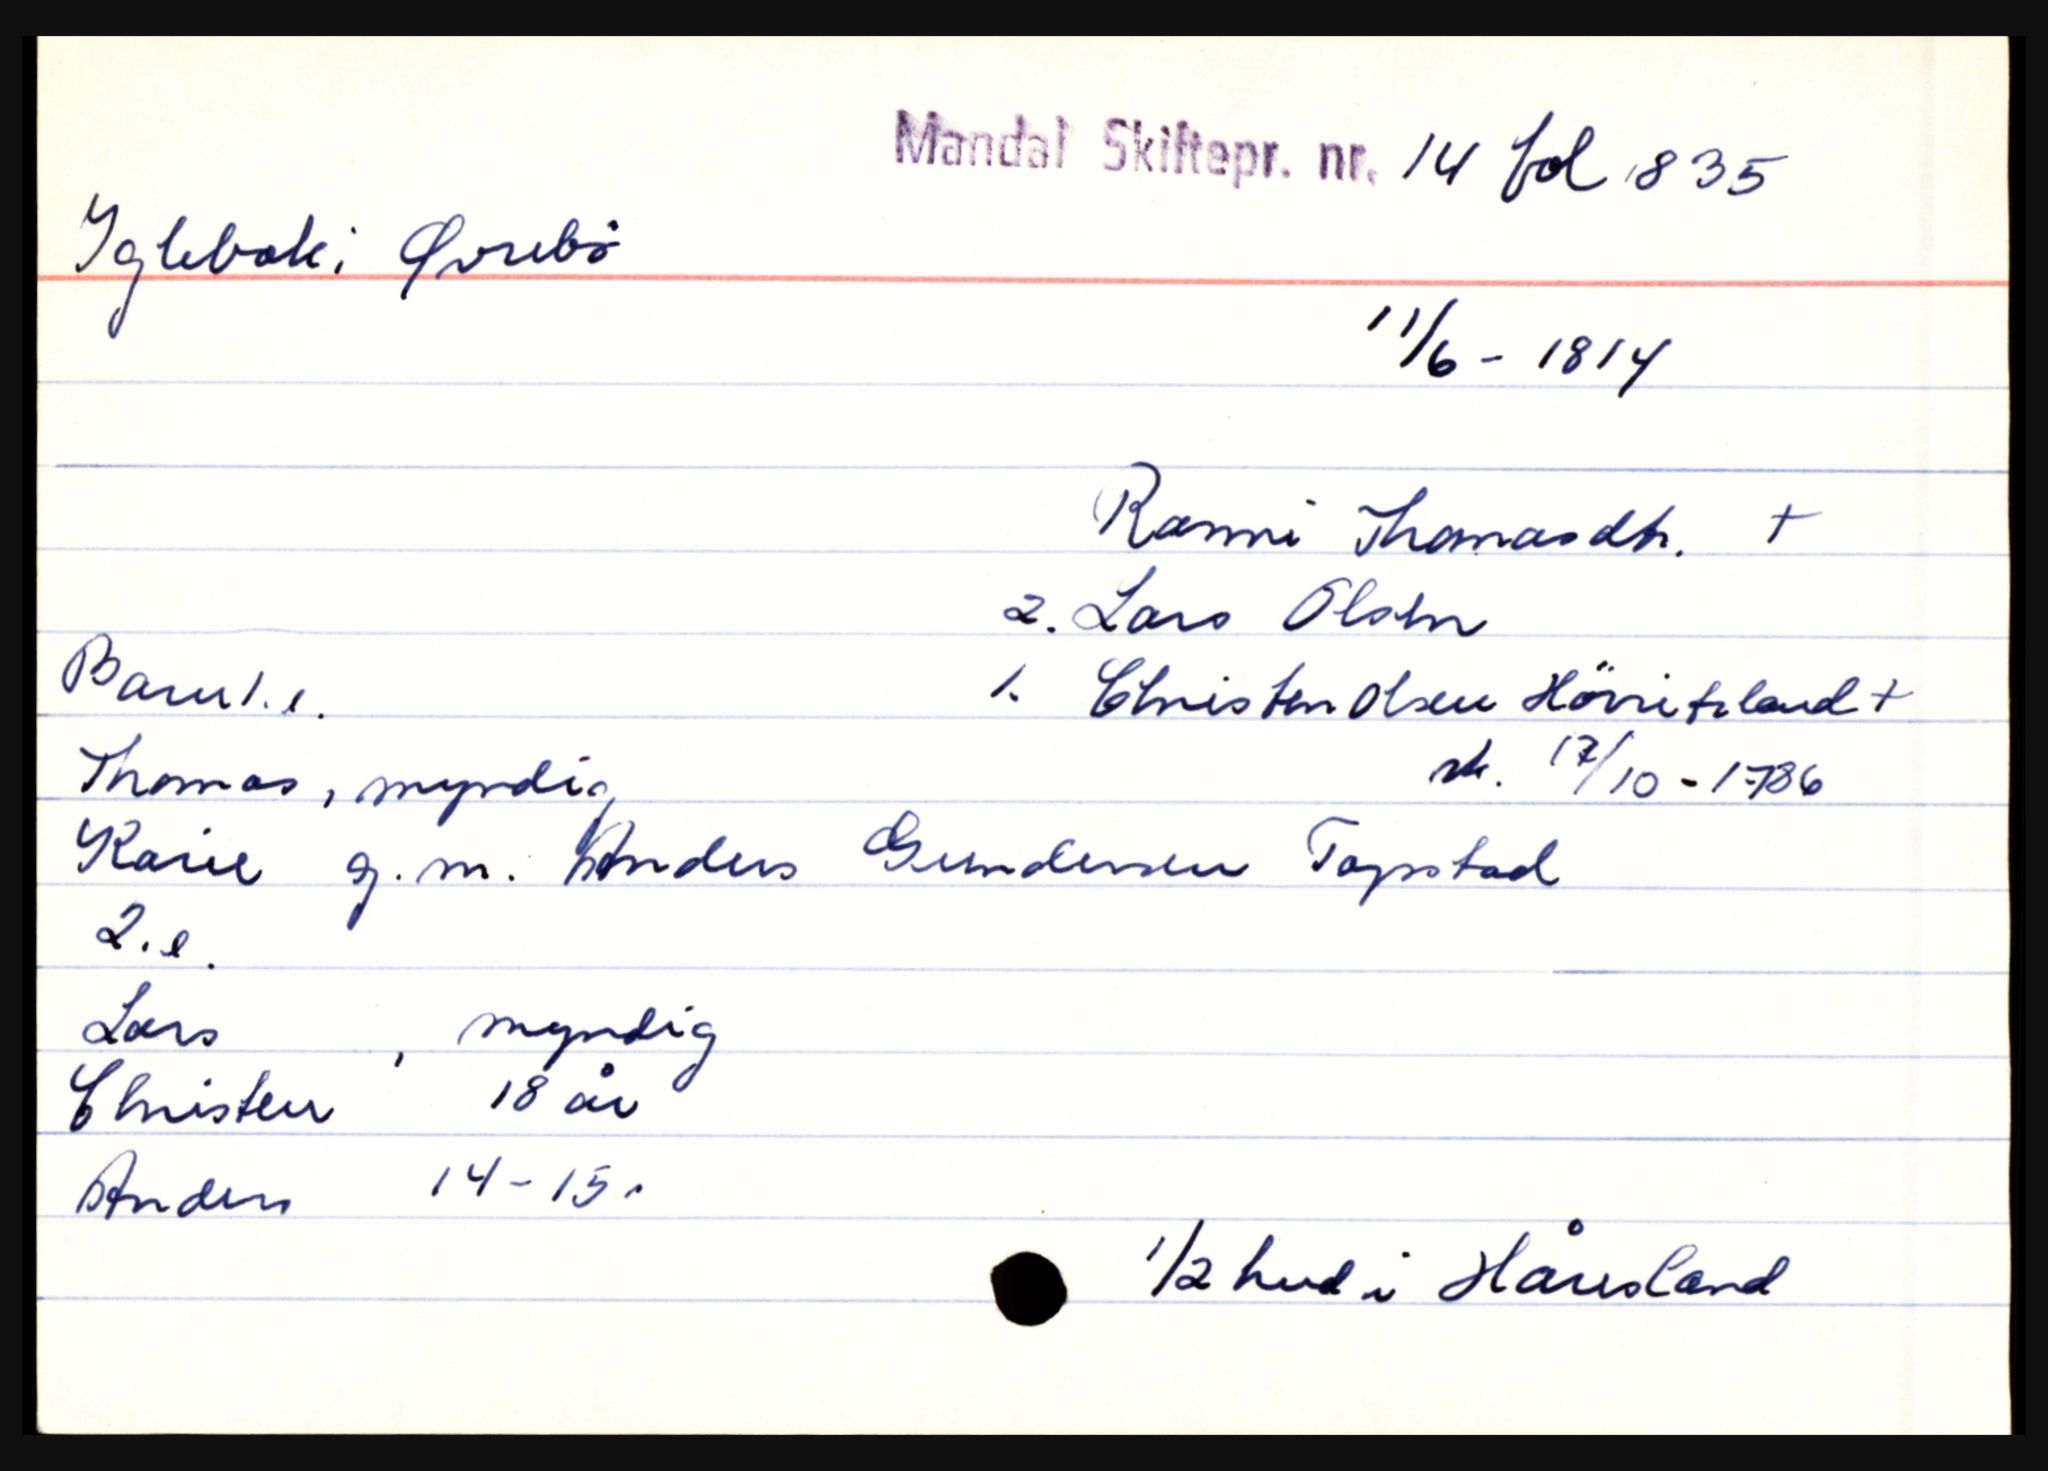 Mandal Skiftepr. nr. 14 fol 835
Iglebæk i Øvrebö
11/6 - 1814
Ranni Thomasdtr. +
2. Lars Olsen
Barn 1. e.
1. Christen Olsen +
sk. 17/10 - 1786
Thomas, myndig
Karie g. m. Anders Gundersen Tapstad
2. e.
Lars , myndig
Christen 18 år
Anders 14 - 15.
1/2 hud i Håvesland